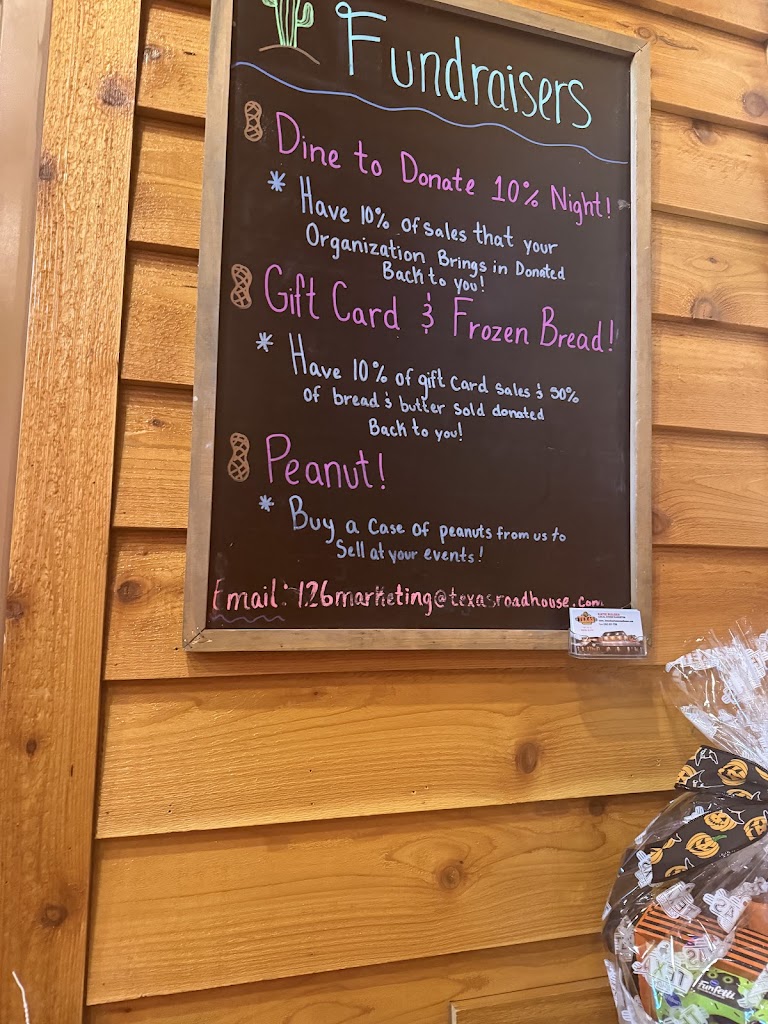 Fundraisers
Dine to Donate 10% Night!
* Have 10% of sales that your
Organization Brings in Donated
Back to you!
Gift Card & Frozen Bread!
* Have 10% of gift card sales & 50%
of bread & butter sold donated
Back to you!
Peanut!
* Buy a case of peanuts from us to
Sell at your events!
Email: 126marketing@texasroadhouse.com
TEXAS
Funfetti